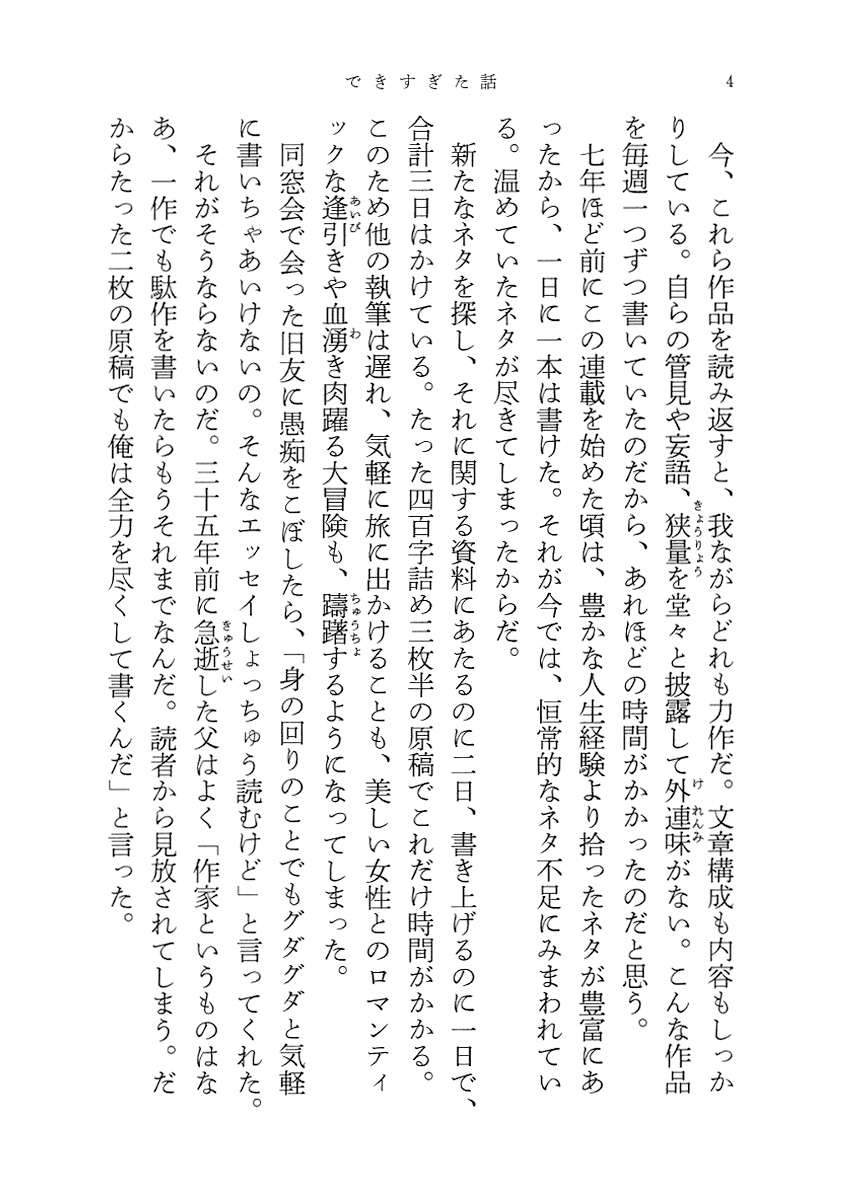 できすぎた話
4
今、これら作品を読み返すと、我ながらどれも力作だ。文章構成も内容もしっか
りしている。自らの管見や妄語、狭量を堂々と披露して外連味がない。こんな作品
を毎週一つずつ書いていたのだから、あれほどの時間がかかったのだと思う。
七年ほど前にこの連載を始めた頃は、豊かな人生経験より拾ったネタが豊富にあ
ったから、一日に一本は書けた。それが今では、恒常的なネタ不足にみまわれてい
る。温めていたネタが尽きてしまったからだ。
新たなネタを探し、それに関する資料にあたるのに二日、書き上げるのに一日で、
合計三日はかけている。たった四百字詰め三枚半の原稿でこれだけ時間がかかる。
このため他の執筆は遅れ、気軽に旅に出かけることも、美しい女性とのロマンティ
ックな逢引きや血湧き肉躍る大冒険も、躊躇するようになってしまった。
同窓会で会った旧友に愚痴をこぼしたら、「身の回りのことでもグダグダと気軽
に書いちゃあいけないの。そんなエッセイしょっちゅう読むけど」と言ってくれた。
それがそうならないのだ。三十五年前に急逝した父はよく「作家というものはな
あ、一作でも駄作を書いたらもうそれまでなんだ。読者から見放されてしまう。だ
からたった二枚の原稿でも俺は全力を尽くして書くんだ」と言った。